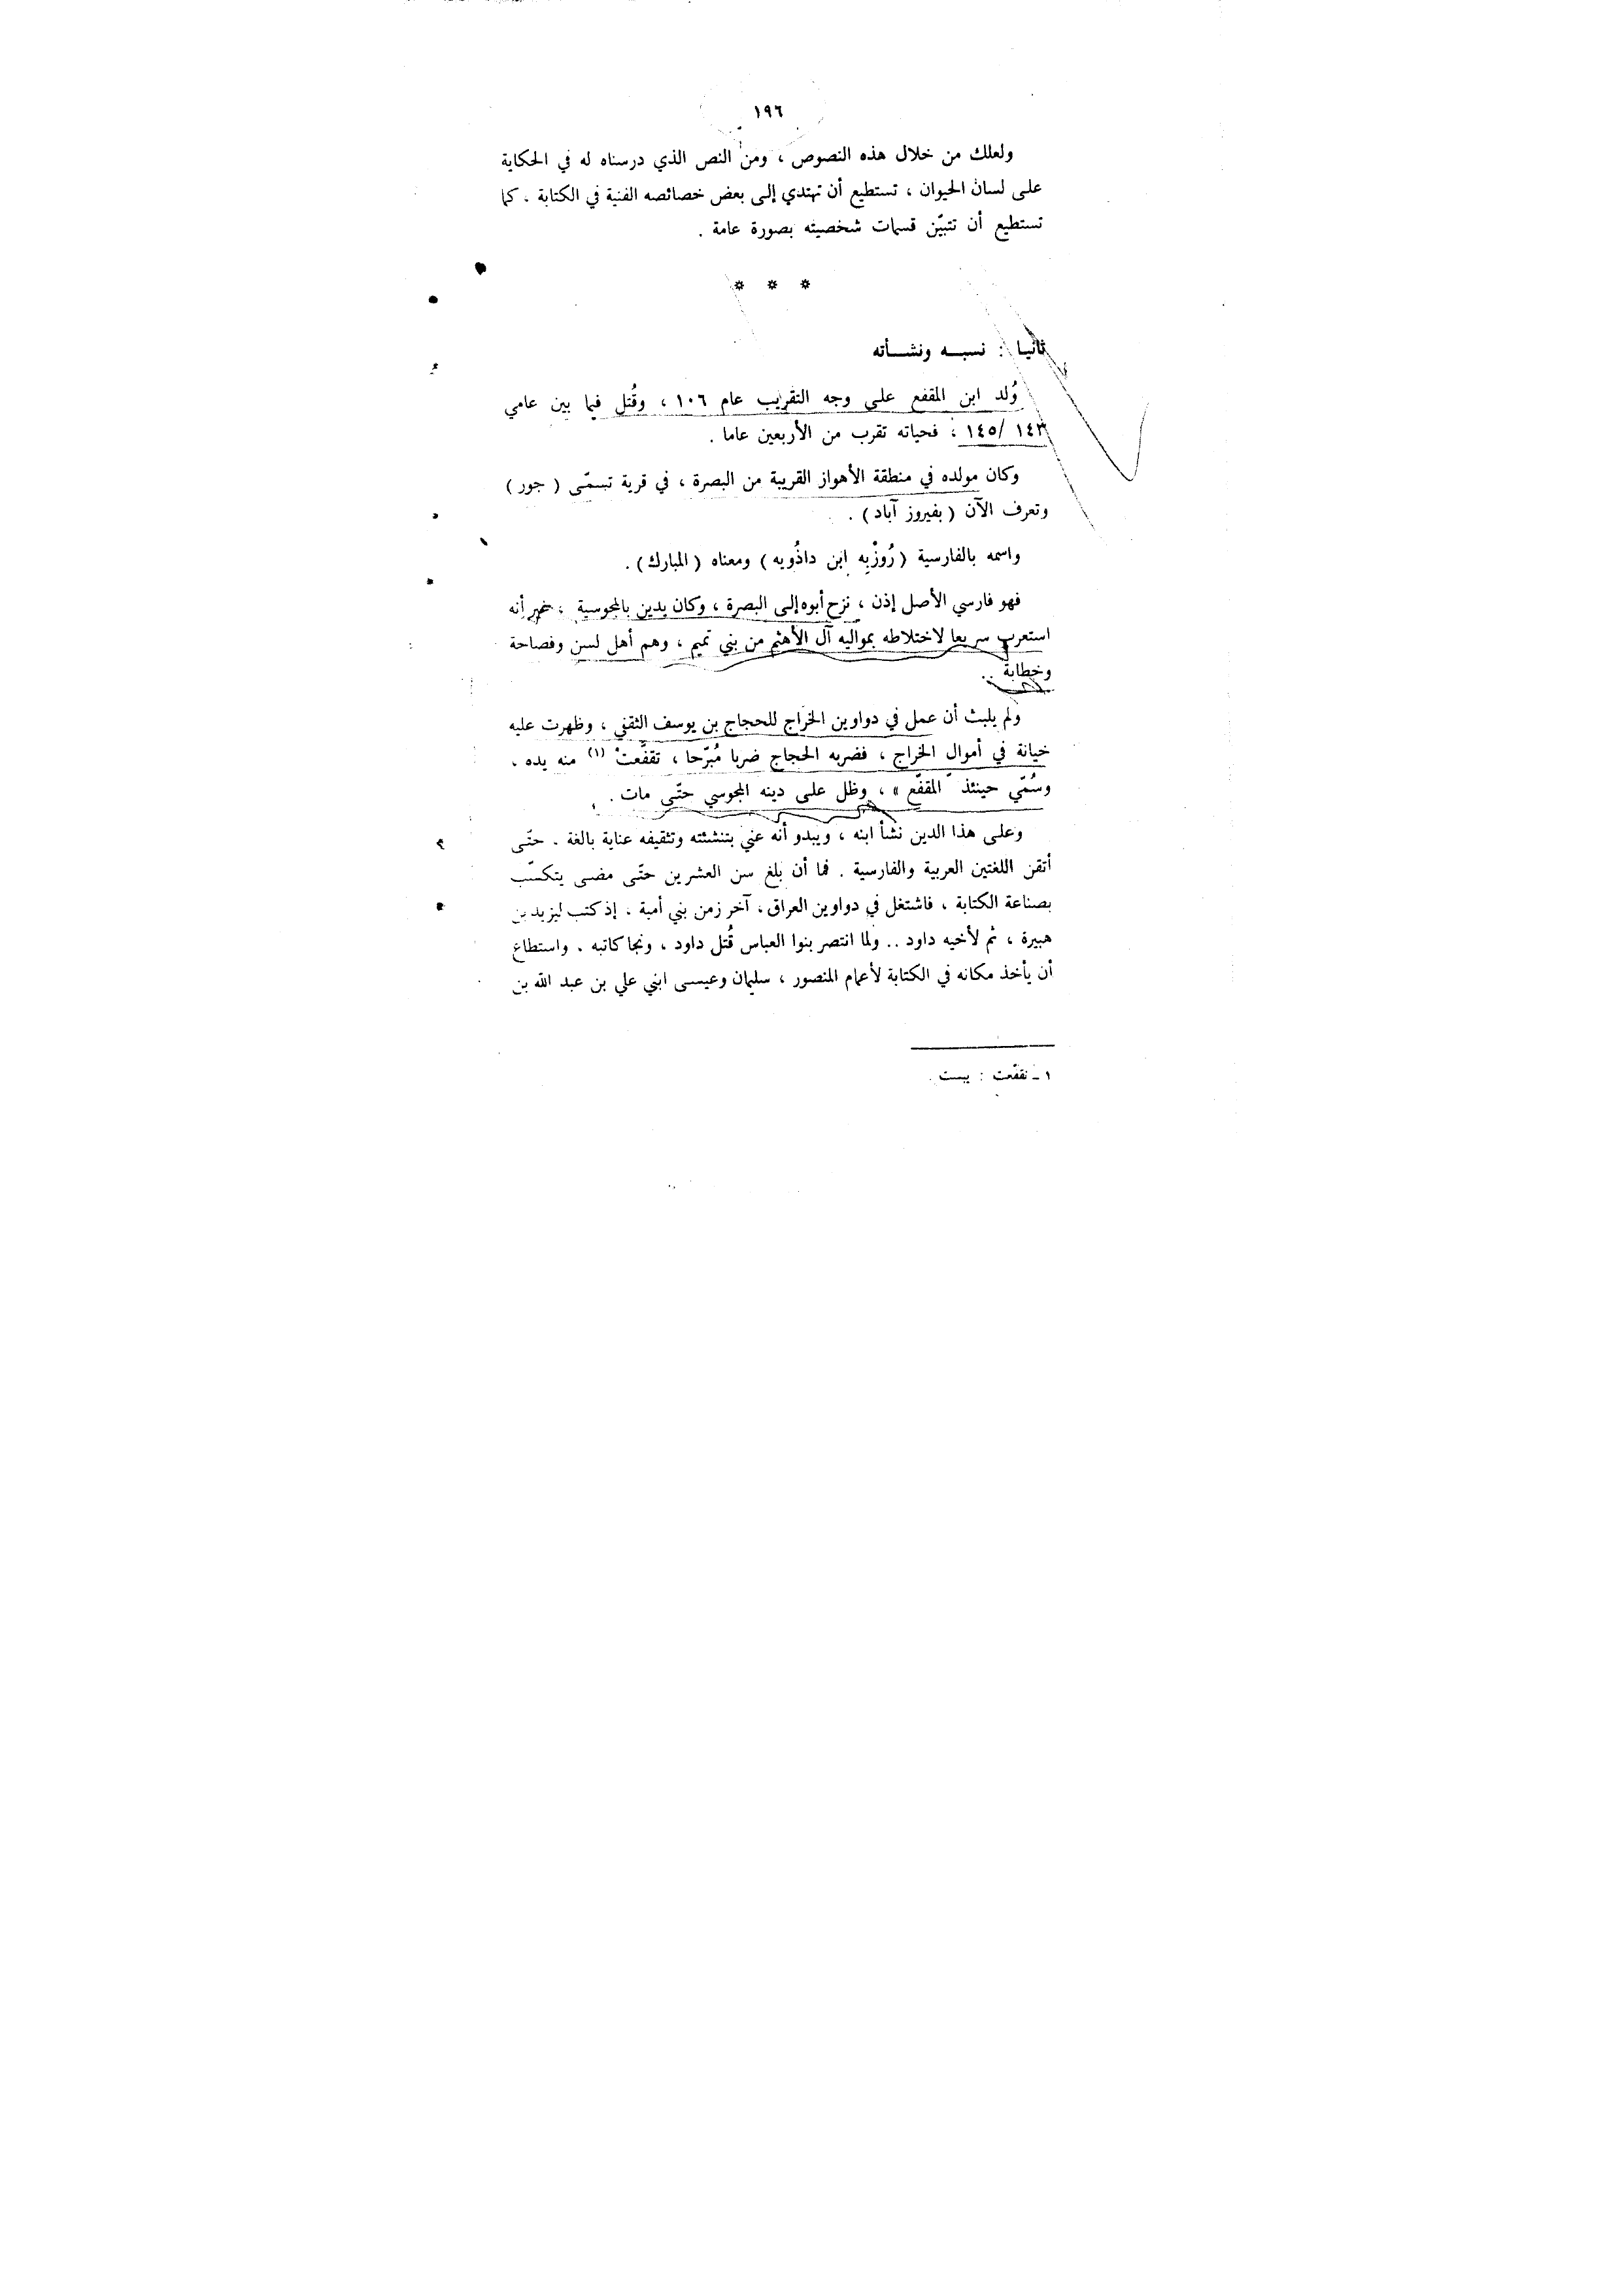 ١٩٦
ولعلك من خلال هذه النصوص ، ومن النص الذي درسناه له في الحكاية
على لسان الحيوان ، تستطيع أن تهتدي إلى بعض خصائصه الفنية في الكتابة . كما
تستطيع أن تتبيّن قسمات شخصيته بصورة عامة .
* * *
ثانيا : نسبـــه ونشـــأته
وُلد ابن المقفع على وجه التقريب عام ١٠٦ ، وقُتل فيما بين عامي
١٤٣ /١٤٥ ؛ فحياته تقرب من الأربعين عاما .
وكان مولده في منطقة الأهواز القريبة من البصرة ، في قرية تسمّى ( جور )
وتعرف الآن ( بفيروز آباد ) .
واسمه بالفارسية ( رُوزْبِه ابن داذُويه ) ومعناه ( المبارك ) .
فهو فارسي الأصل إذن ، نزح أبوه إلى البصرة ، وكان يدين بالمجوسية ؛ غير أنه
استعرب سريعا لاختلاطه بمواليه آل الأهتم من بني تميم ، وهم أهل لسن وفصاحة
وخطابة ..
ولم يلبث أن عمل في دواوين الخراج للحجاج بن يوسف الثقفي ، وظهرت عليه
خيانة في أموال الخراج ، فضربه الحجاج ضربا مُبَرّحا ، تقفَّعتْ (١) منه يده ،
وسُمّي حينئذ " المقفّع » ، وظل على دينه المجوسي حتّى مات .
وعلى هذا الدين نشأ ابنه ، ويبدو أنه عني بتنشئته وتثقيفه عناية بالغة . حتّى
أتقن اللغتين العربية والفارسية . فما أن بلغ سن العشرين حتّى مضى يتكسّب
بصناعة الكتابة ، فاشتغل في دواوين العراق ، آخر زمن بني أمية ، إذ كتب ليزيد بن
هبيرة ، ثم لأخيه داود .. ولما انتصر بنوا العباس قُتل داود ، ونجا كاتبه . واستطاع
أن يأخذ مكانه في الكتابة لأعمام المنصور ، سليمان وعيسى ابني علي بن عبد الله بن
١ ـ تقفّعت : يبست .